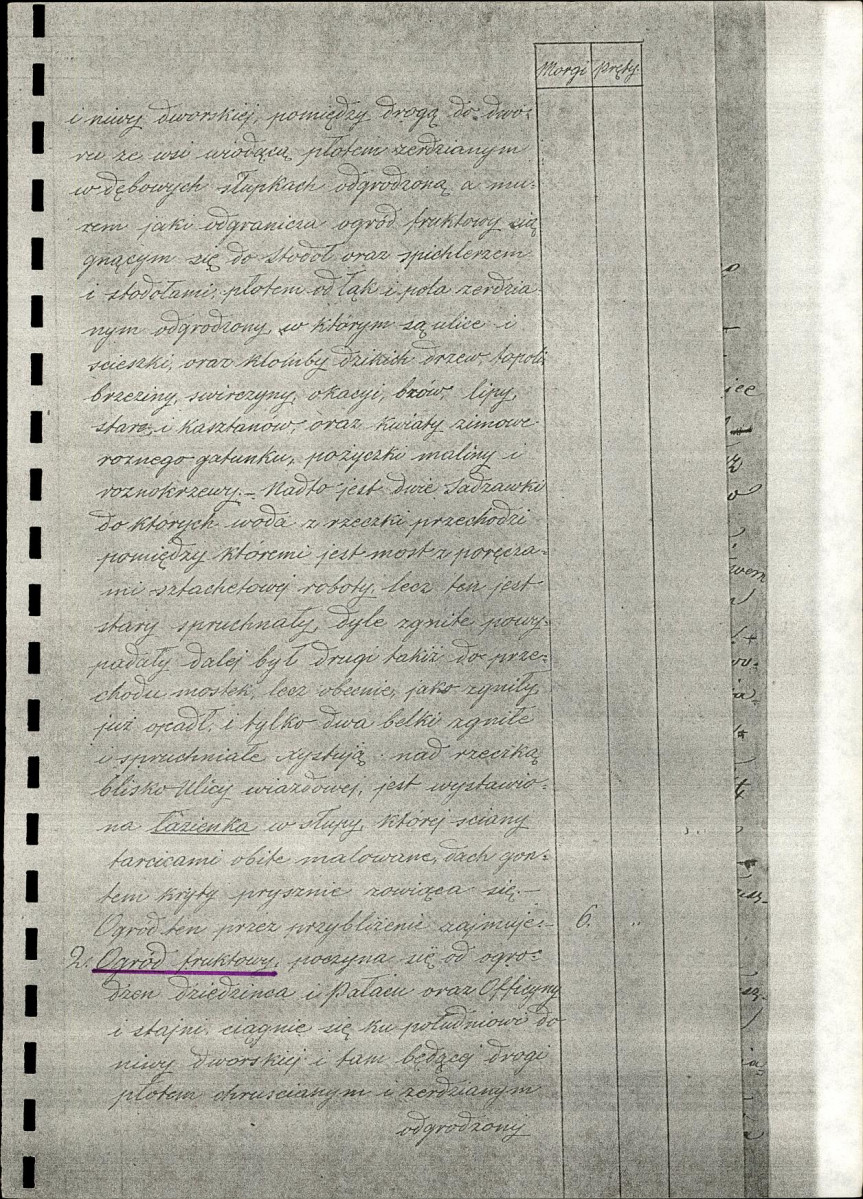 Morgi Pręty
i niwy dworskiej, pomiędzy drogą do dwo-
ru ze wsi wiodącą płotem żerdzianym
w dębowych słupkach odgrodzoną a mu-
rem jaki odgranicza ogród fruktowy cią
gnącym się do stodoł oraz spichlerzem
i stodołami, płotem od łąk i pola żerdzia
nym odgrodzony, w którym są ulice i
scieszki, oraz klomby dzikich drzew, topoli
brzeziny, swirczyny, okacyi, bzów, lipy,
stare i kasztanów, oraz kwiaty zimowe
roznego gatunku, pożyczki maliny i
roznokrzewy. - Nadto jest dwie Sadzawki
do których woda z rzeczki przechodzi
pomiędzy któremi jest most z poręcza-
mi sztachetowej roboty, lecz ten jest
stary spruchnały, dyle zgniłe powy-
padały dalej był drugi takiż do prze-
chodu mostek, lecz obecnie, jako zgniły,
już opadł, i tylko dwa belki zgniłe
i spruchniałe xystują; nad rzeczką
blisko Ulicy wiazdowej, jest wystawio-
na Łazienka w słupy, której sciany
tarcicami obite malowane, dach gon-
tem kryty prysznic zowiąca się. -
Ogród ten przez przybliżenie zajmuje - 6. "
2. Ogród fruktowy, poczyna się od ogro-
dzen dziedzinca i Pałacu oraz Officyny
i stajni, ciągnie się ku południowi do
niwy dworskiej i tam będącej drogi
płotem chruscianym i żerdzianym
odgrodzony